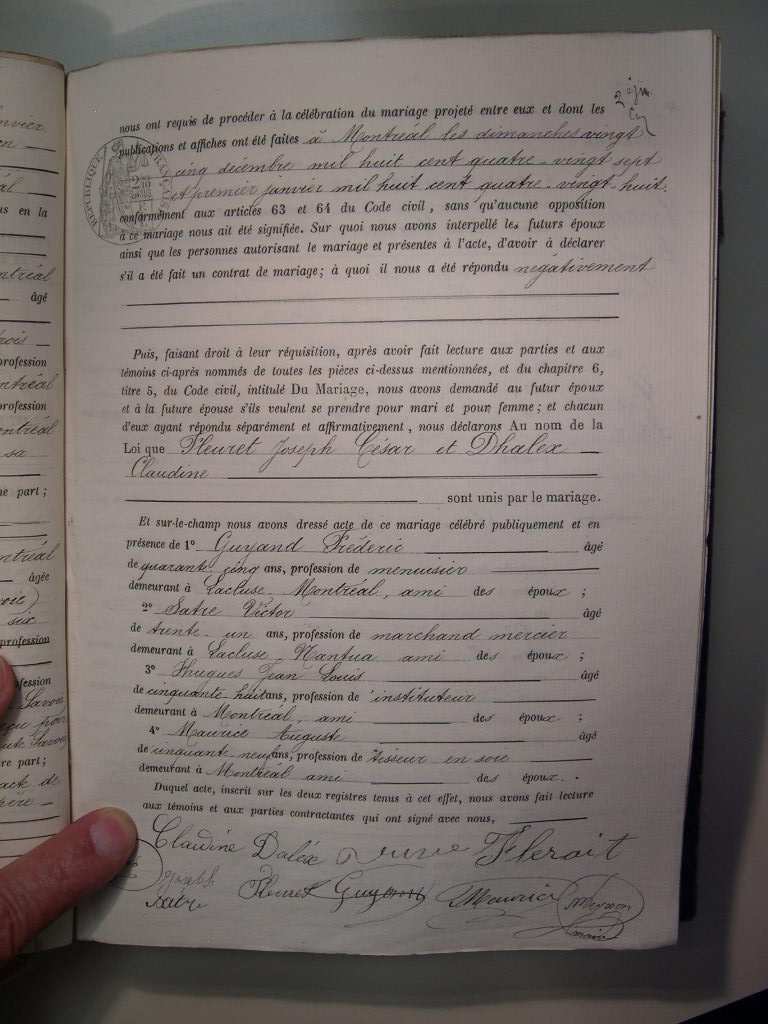 nous ont requis de procéder à la célébration du mariage projeté entre eux et dont les
publications et affiches ont été faites à Montréal les dimanches vingt
cinq décembre mil huit cent quatre-vingt sept
et premier janvier mil huit cent quatre-vingt-huit.
conformément aux articles 63 et 64 du Code civil, sans qu'aucune opposition
à ce mariage nous ait été signifiée. Sur quoi nous avons interpellé les futurs époux
ainsi que les personnes autorisant le mariage et présentes à l'acte, d'avoir à déclarer
s'il a été fait un contrat de mariage; à quoi il nous a été répondu négativement
Puis, faisant droit à leur réquisition, après avoir fait lecture aux parties et aux
témoins ci-après nommés de toutes les pièces ci-dessus mentionnées, et du chapitre 6,
titre 5, du Code civil, intitulé Du Mariage, nous avons demandé au futur époux
et à la future épouse s'ils veulent se prendre pour mari et pour femme; et chacun
d'eux ayant répondu séparément et affirmativement, nous déclarons Au nom de la
Loi que Fleuret Joseph César et Dhalex
Claudine
sont unis par le mariage.
Et sur-le-champ nous avons dressé acte de ce mariage célébré publiquement et en
présence de 1° Guyand Fréderic âgé
de quarante cinq ans, profession de menuisier
demeurant à Lacluse-Montréal, ami des époux;
2° Satre Victor âgé
de trente-un ans, profession de marchand mercier
demeurant à Lacluse-Nantua ami des époux;
3° Thugues Jean Louis âgé
de cinquante huit ans, profession d'instituteur
demeurant à Montréal, ami des époux;
4° Maurice Auguste âgé
de cinquante neuf ans, profession de tisseur en soie
demeurant à Montréal ami des époux.
Duquel acte, inscrit sur les deux registres tenus à cet effet, nous avons fait lecture
aux témoins et aux parties contractantes qui ont signé avec nous,
Claudine Daléx
Fleuret Guyand Maurice
Satre maire